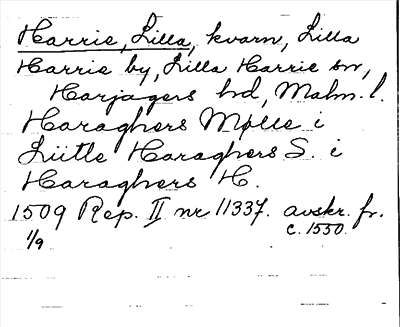 Harrie, Lilla, kvarn, Lilla
Harrie by, Lilla Harrie sn,
Harjagers hd, Malm. l.
Haraghers Mølle i
Liitle Haraghers S. i
Haraghers H.
1509 Rep. II nr 11337. avskr. fr.
1/9 c. 1550.